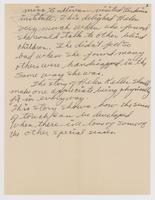 miss Sullivan visited Perkins
Institute. This delighted Helen
very much when she found
she could talk to other blind
children. She didn't feel so
bad when she found many
others were handicapped in the
same way she was.
The story of Helen Keller should
make one appreciate being physically
fit in every way.
This story shows how the sense
of touch can be developed
when there is a loss of some of
the other special senses